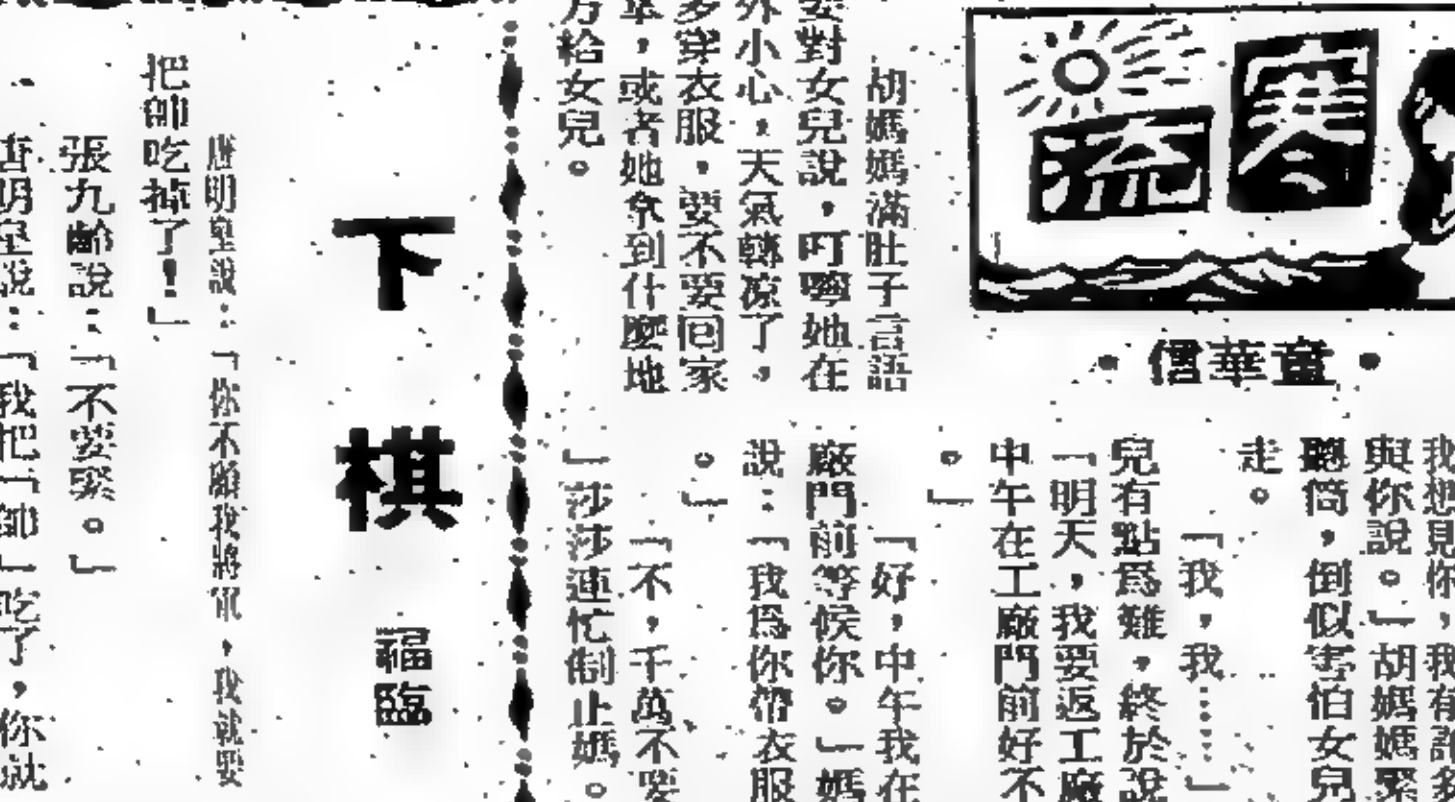 寒流
•童華信•
我想見你，我有許多
與你說。」胡媽媽緊
聽筒，倒似害怕女兒
走。
「我，我……」
兒有點爲難，終於說
「明天，我要返工廠
中午在工廠門前好不
。」
「好，中午我在
廠門前等候你。」媽
說：「我爲你帶衣服
。」
「不，千萬不要
」莎莎連忙制止媽。
胡媽媽滿肚子言語
要對女兒說，叮嚀她在
外小心，天氣轉凉了，
多穿衣服，要不要回家
拿，或者她拿到什麼地
方給女兒。
下棋
福臨
唐明皇說：「你不願我將軍，我就要
把帥吃掉了！」
張九齡說：「不要緊。」
唐明皇說：「我把「帥」吃了，你就